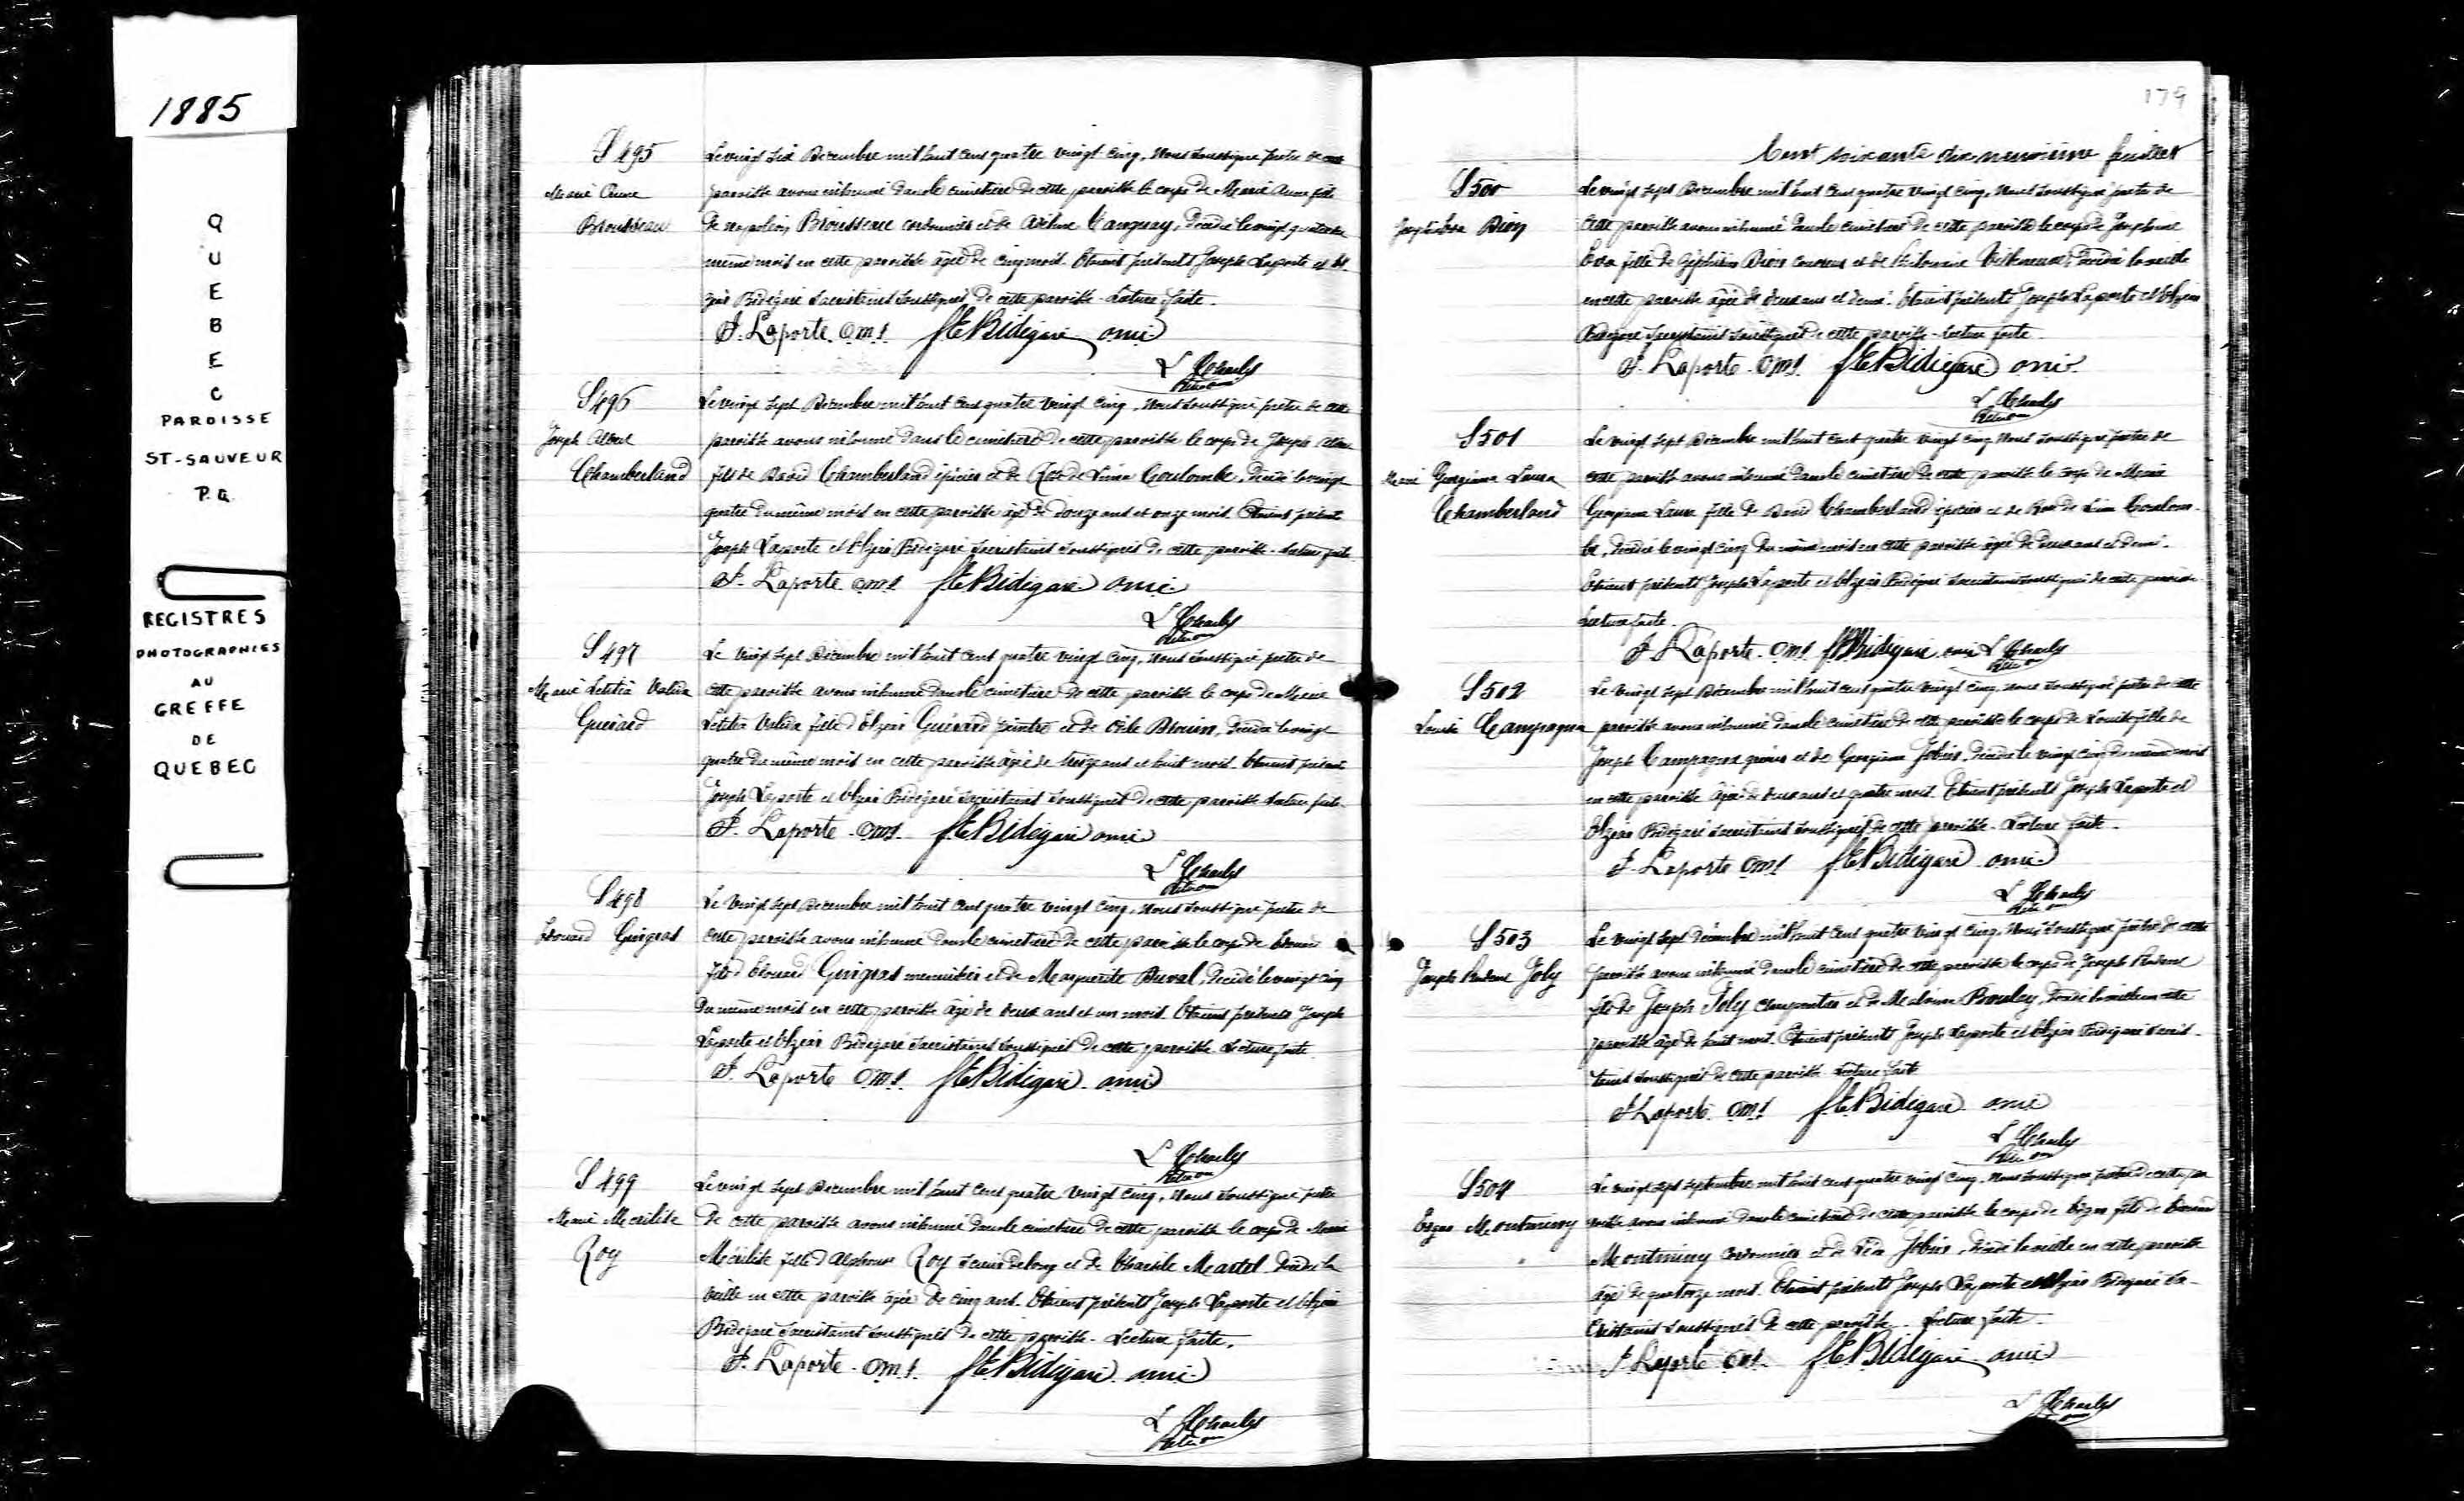 1885
QUEBEC
PAROISSE
ST-SAUVEUR
P.Q.
REGISTRES
PHOTOGRAPHIES
AU
GREFFE
DE
QUEBEC
S 495
Marie Anne
Brousseau
Le vingt six Decembre mil huit cent quatre vingt cinq, Nous soussigné prêtre de cette
paroisse avons inhumé dans le cimetière de cette paroisse le corps de Marie Anne fille
de napoléon Brousseau cordonnier et de Tanguay, décédée le vingt quatre du
même mois en cette paroisse âgée de cinq mois. Etaient présents Joseph Laporte et El-
zéar Bédigaré sacristains soussignés de cette paroisse. Lecture faite.
J. Laporte omi f. E. Bédigaré omi
L Charles
Ptre omi
S 496
Joseph Albert
Chamberland
Le vingt sept Décembre mil huit cent quatre vingt cinq, Nous soussigné prêtre de cette
paroisse avons inhumé dans le cimetière de cette paroisse le corps de Joseph
fils de David Chamberland épicier et de Rose de Lima Coulombe, décédé le vingt
quatre du même mois en cette paroisse âgé de douze ans et onze mois. Etaient présents
Joseph Laporte et Elzéar Bédigaré sacristains soussignés de cette paroisse. Lecture faite
J. Laporte omi f. E. Bédigaré omi
L Charles
Ptre omi
S 497
Marie Letitia Valeda
Guérard
Le vingt sept Décembre mil huit cent quatre vingt cinq, Nous soussigné prêtre de
cette paroisse avons inhumé dans le cimetière de cette paroisse le corps de Marie
Letitia Valeda fille d'Elzéar Guérard peintre et de Blouin, décédée le vingt
quatre du même mois en cette paroisse âgée de ans et huit mois. Etaient présents
Joseph Laporte et Elzéar Bédigaré sacristains soussignés de cette paroisse. Lecture faite.
J. Laporte omi f. E. Bédigaré omi
L Charles
Ptre omi
S 498
Edouard Gingras
Le vingt sept Decembre mil huit cent quatre vingt cinq, Nous soussigné prêtre de
cette paroisse avons inhumé dans le cimetière de cette paroisse le corps de Edouard
fils d'Edouard Gingras menuisier et de Marguerite Duval, décédé le vingt cinq
du même mois en cette paroisse âgé de deux ans et un mois. Etaient présents Joseph
Laporte et Elzéar Bédigaré sacristains soussignés de cette paroisse. Lecture faite.
J. Laporte omi f. E. Bédigaré omi
L Charles
Ptre omi
S 499
Marie
Roy
Le vingt sept Decembre mil huit cent quatre vingt cinq, Nous soussigné prêtre
de cette paroisse avons inhumé dans le cimetière de cette paroisse le corps de Marie
fille d'Alphonse Roy scieur de long et de Martel décédée la
veille en cette paroisse âgée de cinq ans. Etaient présents Joseph Laporte et Elzéar
Bédigaré sacristains soussignés de cette paroisse. Lecture faite.
J. Laporte omi f. E. Bédigaré omi
L Charles
Ptre omi
179
Cent soixante dix neuvième feuillet
S 500
Dion
Le vingt sept Décembre mil huit cent quatre vingt cinq, Nous soussigné prêtre de
cette paroisse avons inhumé dans le cimetière de cette paroisse le corps de Joséphine
fille de Zéphirin Dion et de Philomène Villeneuve, décédée la veille
en cette paroisse âgée de deux ans et demi. Etaient présents Joseph Laporte et Elzéar
Bédigaré sacristains soussignés de cette paroisse. Lecture faite.
J. Laporte omi f. E. Bédigaré omi
L Charles
Ptre omi
S 501
Marie Georgiana Laura
Chamberland
Le vingt sept Décembre mil huit cent quatre vingt cinq Nous soussigné prêtre de
cette paroisse avons inhumé dans le cimetière de cette paroisse le corps de Marie
Georgiana Laura fille de David Chamberland épicier et de Rose de Lima Coulom-
be, décédée le vingt cinq du même mois en cette paroisse âgée de deux ans et demi.
Etaient présents Joseph Laporte et Elzéar Bédigaré sacristains soussignés de cette paroisse.
Lecture faite.
J. Laporte omi f. E. Bédigaré omi L Charles
Ptre omi
S 502
Louise Campagna
Le vingt sept Décembre mil huit cent quatre vingt cinq, nous soussigné prêtre de cette
paroisse avons inhumé dans le cimetière de cette paroisse le corps de Louise fille de
Joseph Campagna et de Georgiana Jobin, décédée le vingt cinq du même mois
en cette paroisse âgée de deux ans et quatre mois. Etaient présents Joseph Laporte et
Elzéar Bédigaré sacristains soussignés de cette paroisse. Lecture faite.
J. Laporte omi f. E. Bédigaré omi
L Charles
Ptre omi
S 503
Joseph Joly
Le vingt sept décembre mil huit cent quatre vingt cinq, Nous soussigné prêtre de cette
paroisse avons inhumé dans le cimetière de cette paroisse le corps de Joseph
fils de Joseph Joly charpentier et de Malvina Bouley, décédé la veille en cette
paroisse âgé de huit mois. Etaient présents Joseph Laporte et Elzéar Bédigaré sacris-
tains soussignés de cette paroisse. Lecture faite
J. Laporte omi f. E. Bédigaré omi
L Charles
Ptre omi
S 504
Edgar Montminy
Le vingt sept septembre mil huit cent quatre vingt cinq, Nous soussigné prêtre de cette pa-
roisse avons inhumé dans le cimetière de cette paroisse le corps de Edgar fils de Edouard
Montminy cordonnier et de Léa Jobin, décédé la veille en cette paroisse
âgé de quatorze mois. Etaient présents Joseph Laporte et Elzéar Bédigaré sa-
cristains soussignés de cette paroisse. Lecture faite.
J. Laporte omi f. E. Bédigaré omi
L Charles